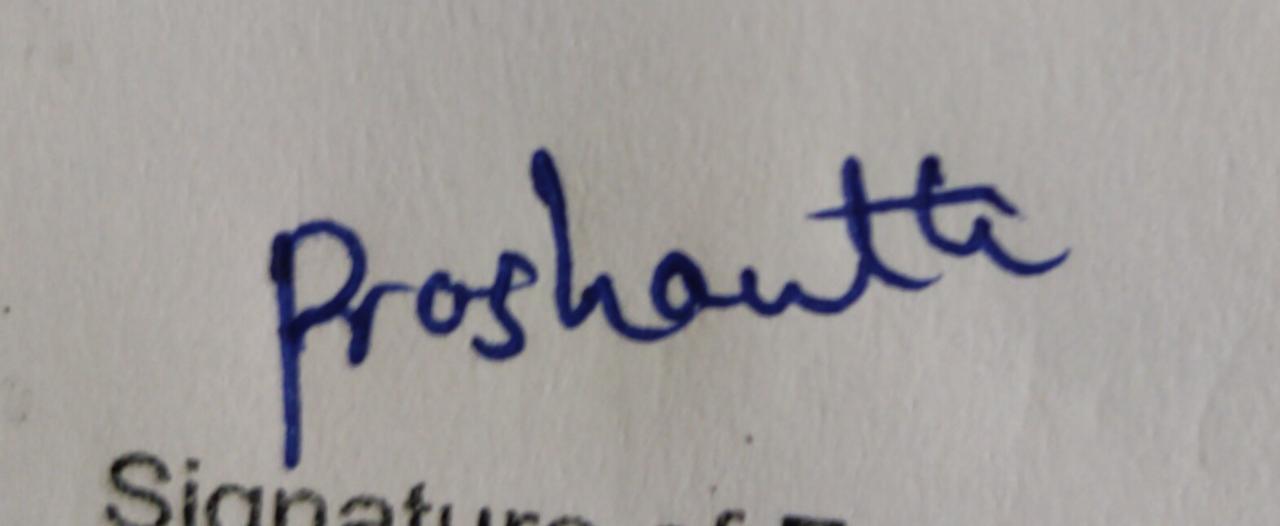 Proshantta
Signature of